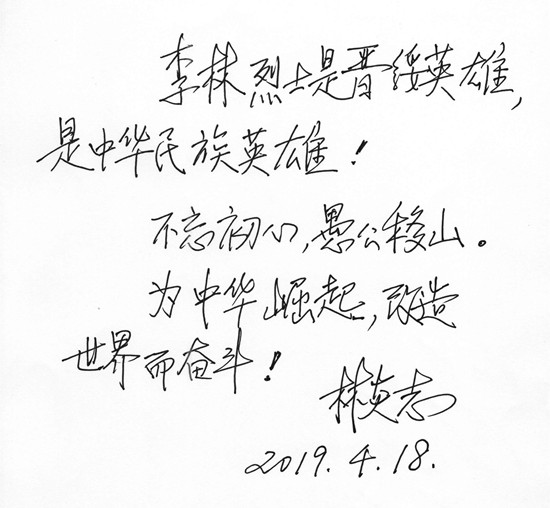 李林烈士是晋绥英雄，
是中华民族英雄！
不忘初心，愚公移山。
为中华崛起，改造
世界而奋斗！
林炎志
2019.4.18.